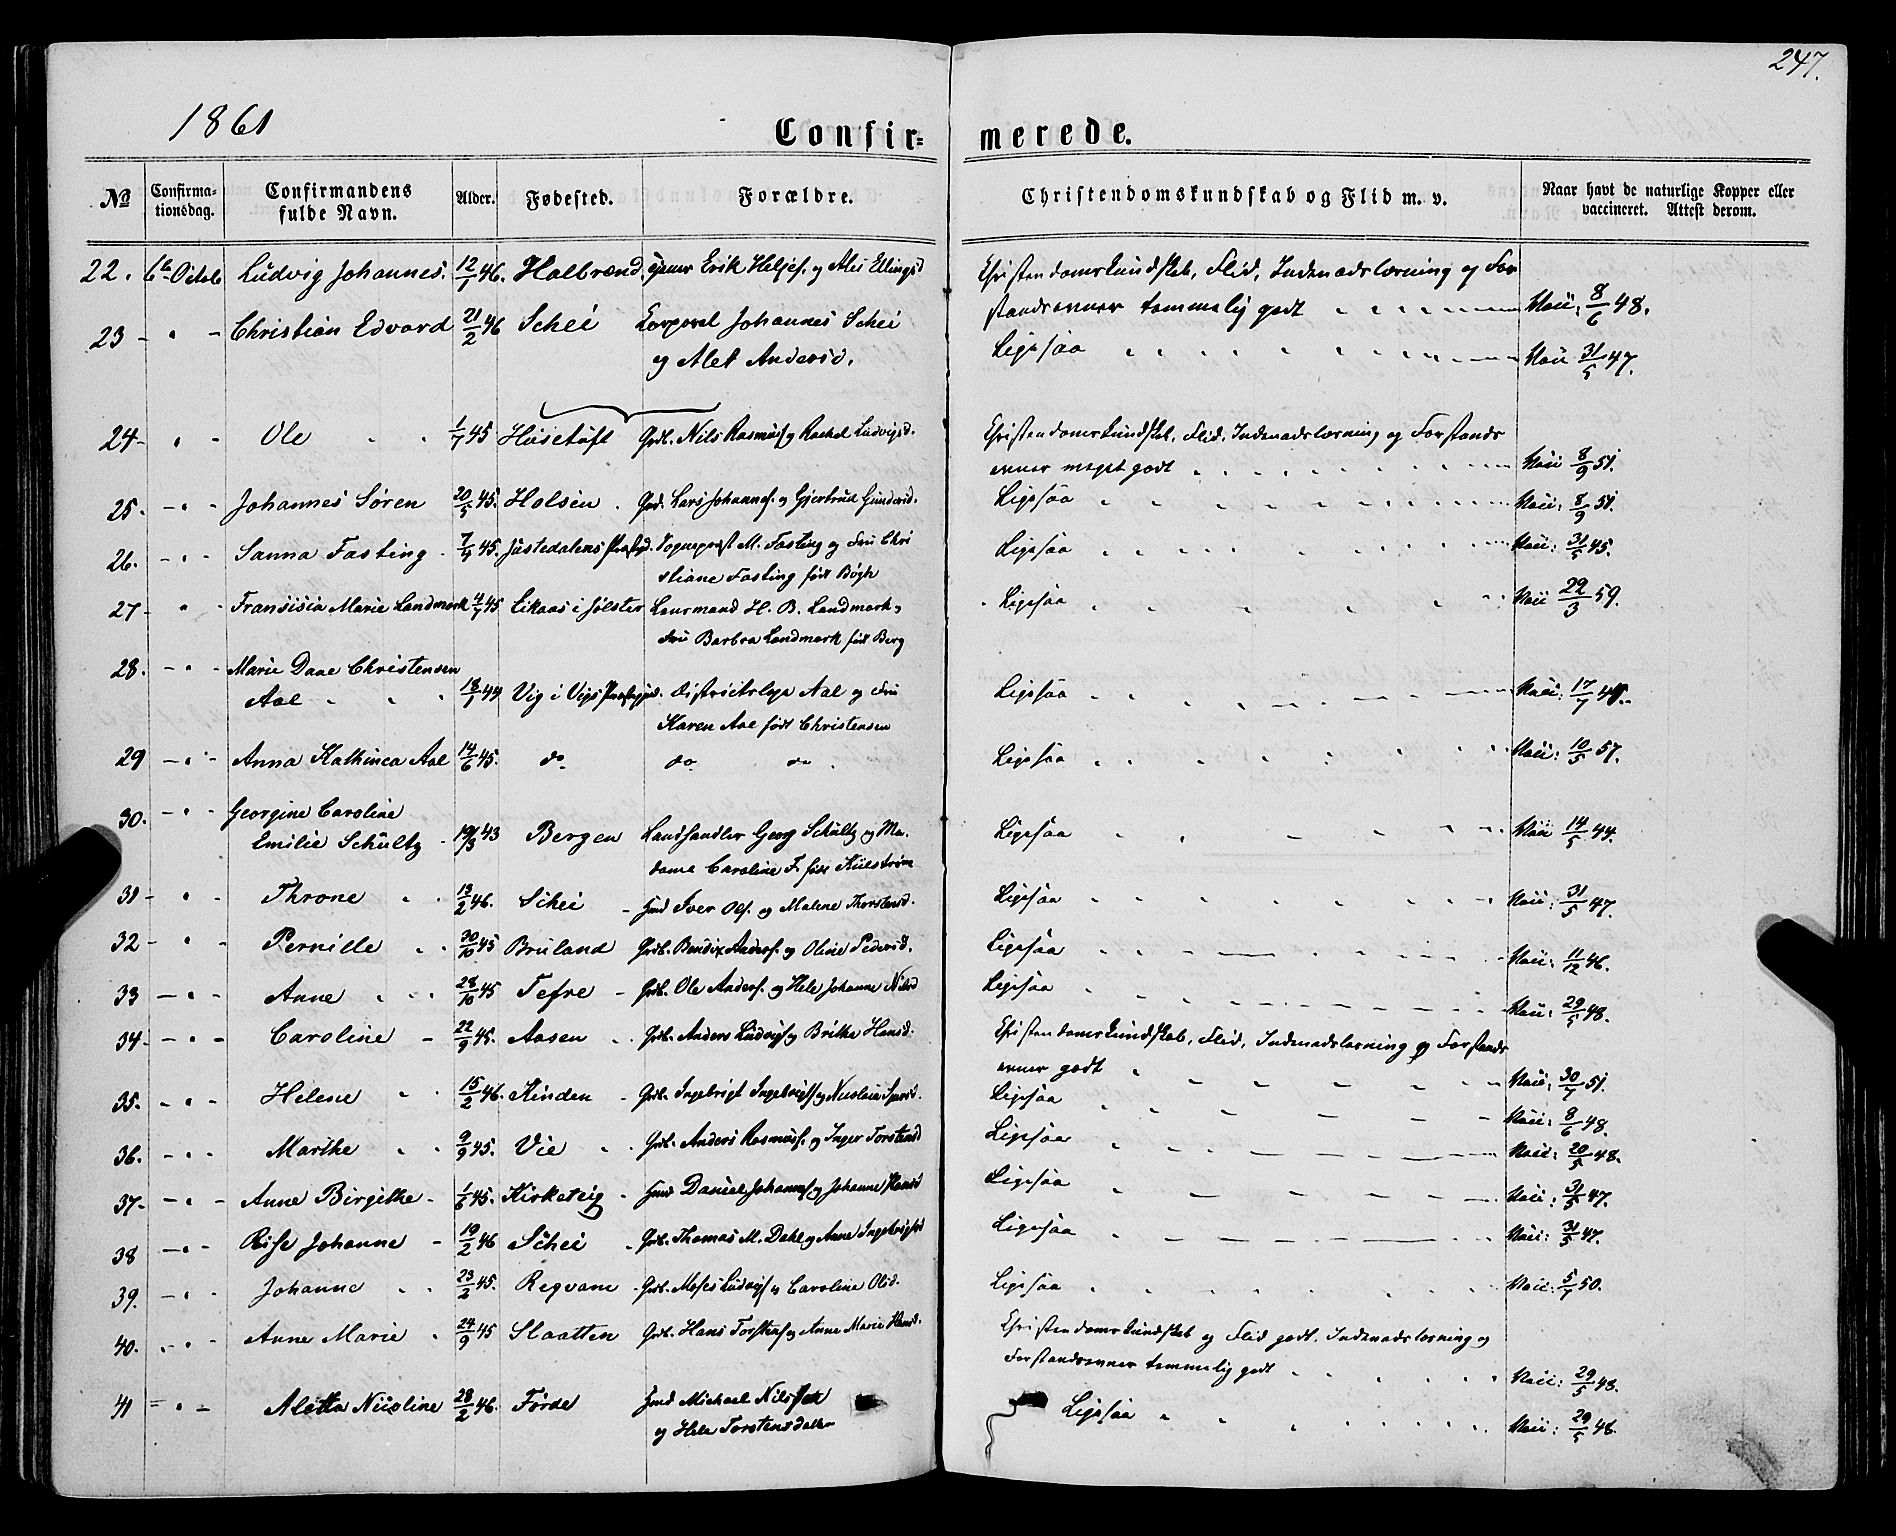 247.
1861
Confir=
merede.
No
Confirma-
tionsdag.
Confirmandens
fulde Navn.
Alder.
Fødested.
Forældre.
Christendomskundskab og Flid m. v.
Naar havt de naturlige Kopper eller
vaccineret. Attest derom.
22. 6te Octob Ludvig Johannes. 12/1 46. Halbrænd Erik Heljes. og Ales Ellingsd Christendomskundskab, Flid, Indenadslæsning og For
standsevner temmelig godt Vaii: 8/6 48.
23 - " - Christian Edvard 21/2 46 Schei Korporal Johannes Schei Ligesaa Vaii 31/5 47.
og Alet Andersd.
24 - " - Ole 1/7 45 Husetuft Grdb. Nils Rasmuss og Rachel Ludvigsd. Christendomskundskab, Flid, Indenadslæsning og Forstands
evner meget godt Vaii 8/9 51.
25. - " - Johannes Søren 20/5 45. Holsen Grd. Lars Johannes. og Gjertrud Gundersd. Ligesaa Vaii: 8/9 51.
26. - " - Sanna Fasting 7/4 45. Justedalens Prstgd. Sognepræst M. Fasting og Fru Chri Ligesaa Vaii: 31/5 45.
stiane Fasting født Bøgh
27 - " - Fransisia Marie Landmark 4/7 45 Eikaas i Jølster Lensmand H. B. Landmark, Ligesaa Vaii 22/3 59.
Fru Barbra Landmark født Berg
28. - " - Marie Daae Christensen
Aal 18/1 44 Vig i Vigs Prstgjd. Districtslæge Aal og Fru Ligesaa Vaii: 17/7 45.
Karen Aal født Christensen
29 - " - Anna Kathinca Aal 14/6 45. do do do Ligesaa Vaii: 10/5 57.
30. - " - Georgine Caroline
Emilie Schultz 19/3 43 Bergen Landhandler Georg Schultz og Ma- Ligesaa Vaii 14/5 44.
dame Caroline F. født
31 - " - Throne 13/2 46. Schei Hmd Iver Ols. og Malene Thorstensd. Ligesaa Vaii: 31/5 47.
32 - " - Pernille 30/10 45 Bruland Grdb. Bendix Anders. og Oline Pedersd. Ligesaa Vaii: 11/12 46.
33 - " - Anne 28/10 45 Tefre Grdb. Ole Anders. og Hele Johanne Nilsd Ligesaa Vaii: 29/5 48.
34 - " - Caroline 22/9 45. Aasen Grdb. Anders Ludvigs og Brithe Hansd. Christendomskundskab, Flid, Indenadslæsning og Forstands
evner godt Vaii: 30/7 51.
35. - " - Helene 15/2 46. Kinden Grdb. Ingebrigt Ingebrigts og Ligesaa Vaii: 8/6 48.
36. - " - Marthe 9/9 45. Vie Grdb. Anders Rasmuss. og Inger Torstensd Ligesaa Vaii: 20/5 48.
37 - " - Anne Birgithe 1/6 45. Kirketeig Hmd Daniel Johanns og Johanne Hansd Ligesaa Vaii: 31/5 47.
38 - " - Rise Johanne 19/2 46 Schei Grdb. Thomas M. Dahl og Anne Ingebrigtsd Ligesaa Vaii: 31/5 47.
39. - " - Johanne 23/2 45. Regvam Grdb. Moses Ludvigs og Caroline Olsd. Ligesaa Vaii: 5/7 50.
40. - " - Anne Marie 24/9 45 Slaatten Grdb. Hans Torstens og Anne Marie Hansd. Christendomskundskab og Flid godt, Indenadslæsning og
Forstandsevner temmelig godt Vaii: 29/5 48.
41 = " - Aletta Nicoline 28/2 46. Førde Hmd Michael Nilssøn Ligesaa Vaii: 29/5 48.
og Hele Torstensdatter